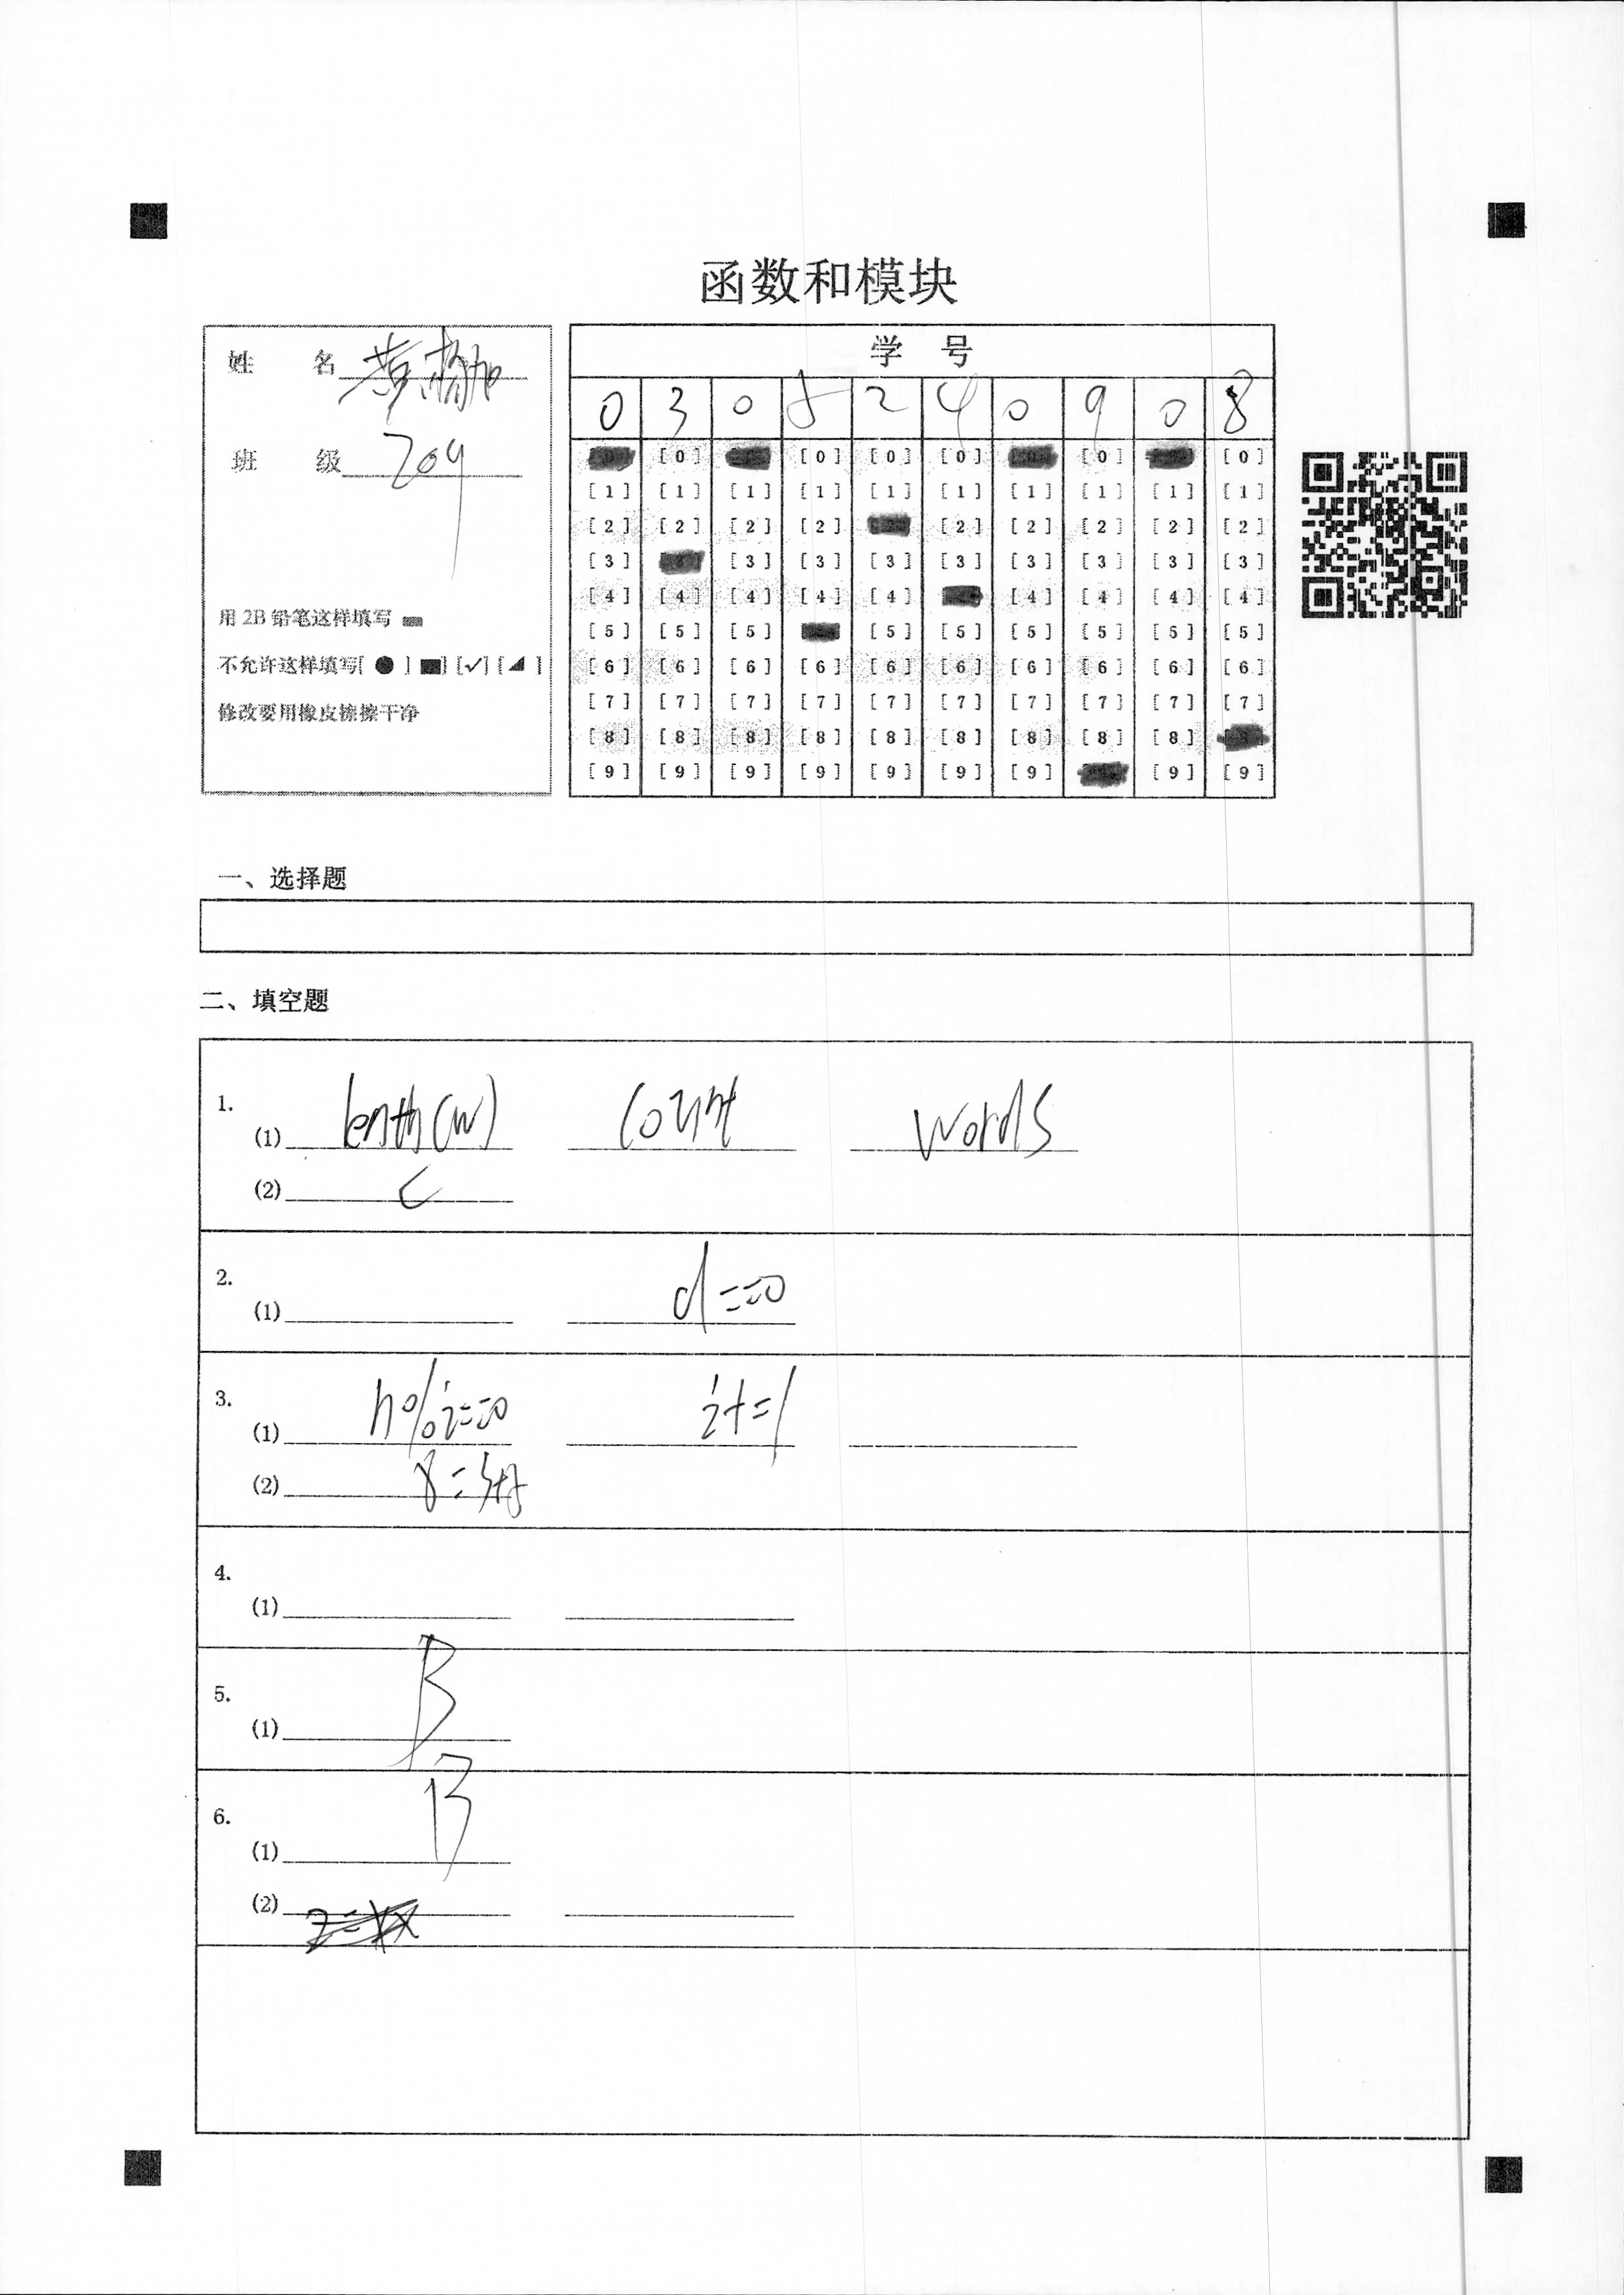 函数和模块
姓 名 黄
班 级 204
用 2B 铅笔这样填写
不允许这样填写[ ● ] [■] [✓] [◢ ]
修改要用橡皮擦擦干净
学 号
0 3 0 5 2 4 0 9 0 8
[0] [0] [0] [0] [0] [0]
[1] [1] [1] [1] [1] [1] [1] [1] [1] [1]
[2] [2] [2] [2] [2] [2] [2] [2] [2]
[3] [3] [3] [3] [3] [3] [3] [3] [3]
[4] [4] [4] [4] [4] [4] [4] [4] [4]
[5] [5] [5] [5] [5] [5] [5] [5] [5]
[6] [6] [6] [6] [6] [6] [6] [6] [6] [6]
[7] [7] [7] [7] [7] [7] [7] [7] [7] [7]
[8] [8] [8] [8] [8] [8] [8] [8] [8]
[9] [9] [9] [9] [9] [9] [9] [9] [9]
一、选择题
二、填空题
1.
(1) lenth(w) count words
(2) C
2.
(1) d==0
3.
(1) n%i==0 i+=1
(2)
4.
(1)
5.
(1) B
6.
(1) B
(2)